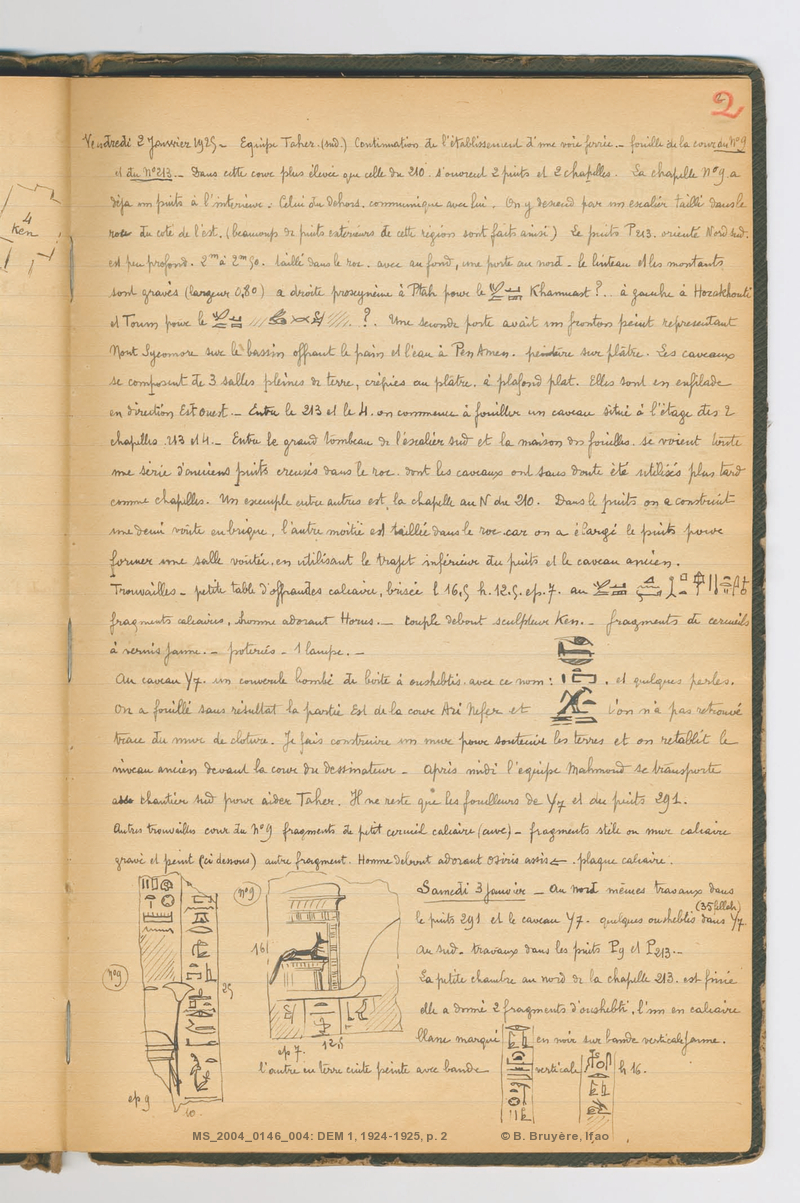 2
4
Ken
Vendredi 2 Janvier 1925 - Equipe Taher (sud.) Continuation de l'établissement d'une voie ferrée - fouille de la cour du N°9
et du N°213. - Dans cette cour plus élevée que celle du 210. s'ouvrent 2 puits et 2 chapelles. La chapelle N°9 a
déjà un puits à l'interieur. Celui du dehors. communique avec lui. On y descend par un escalier taillé dans le
roc du coté de l'est. (beaucoup de puits exterieurs de cette région sont faits ainsi) Le puits P213. orienté Nord sud.
est peu profond. 2m à 2m50. taillé dans le roc. avec au fond, une porte au nord - le linteau et les montants
sont gravés (largeur 0,80) à droite proscynème à Ptah pour le Khamuast ? . à gauche à Hozakhouti
et Toum pour le ? . Une seconde porte avait un fronton peint representant
Nout Sycomore sur le bassin offrant le pain et l'eau à Pen Amen. peinture sur plâtre. Les caveaux
se composent de 3 salles pleines de terre, crépies au plâtre. à plafond plat. Elles sont en enfilade
en direction Est ouest. - Entre le 213 et le 4. on commence à fouiller un caveau situé à l'étage des 2
chapelles 213 et 4. - Entre le grand tombeau de l'escalier sud et la maison des fouilles. se voient toute
une série d'anciens puits creusés dans le roc. dont les caveaux ont sans doute été utilisés plus tard
comme chapelles. Un exemple entre autres est la chapelle au N du 210. Dans le puits on a construit
une demi voute en brique, l'autre moitié est taillée dans le roc car on a élargi le puits pour
former une salle voutée, en utilisant le trajet inférieur du puits et le caveau ancien.
Trouvailles - petite table d'offrandes calcaire, brisée l 16,5 h. 12.5. ep. 7. au
fragments calcaires, homme adorant Horus. - couple debout sculpteur Ken. - fragments de cercueils
à vernis jaune. - poteries - 1 lampe. -
Au caveau Y7. un couvercle bombé de boite à oushebtis avec ce nom : . et quelques perles.
On a fouillé sans résultat la partie Est de la cour Ari Nefer et l'on n'a pas retrouvé
trace du mur de cloture. Je fais construire un mur pour soutenir les terres et on retablit le
niveau ancien devant la cour du dessinateur - Après midi l'equipe Mahmoud se transporte
chantier sud pour aider Taher. Il ne reste que les fouilleurs de Y7 et du puits 291.
Autres trouvailles cour du N°9 fragments de petit cercueil calcaire (cuve) - fragments stèle ou mur calcaire
gravé et peint (ci dessous) autre fragment. Homme debout adorant osiris assis ← . plaque calcaire.
n°9
25
ep 9
10.
n°9
16
ep 7.
12,5
Samedi 3 Janvier - Au nord mêmes travaux dans
le puits 291 et le caveau Y7. quelques oushebtis dans Y7.
Au sud - travaux dans les puits P9 et P213. -
La petite chambre au nord de la chapelle 213. est finie
elle a donné 2 fragments d'oushebti, l'un en calcaire
blanc marqué en noir sur bande verticale jaune.
l'autre en terre cuite peinte avec bande verticale h 16.
MS_2004_0146_004: DEM 1, 1924-1925, p. 2
© B. Bruyère, Ifao